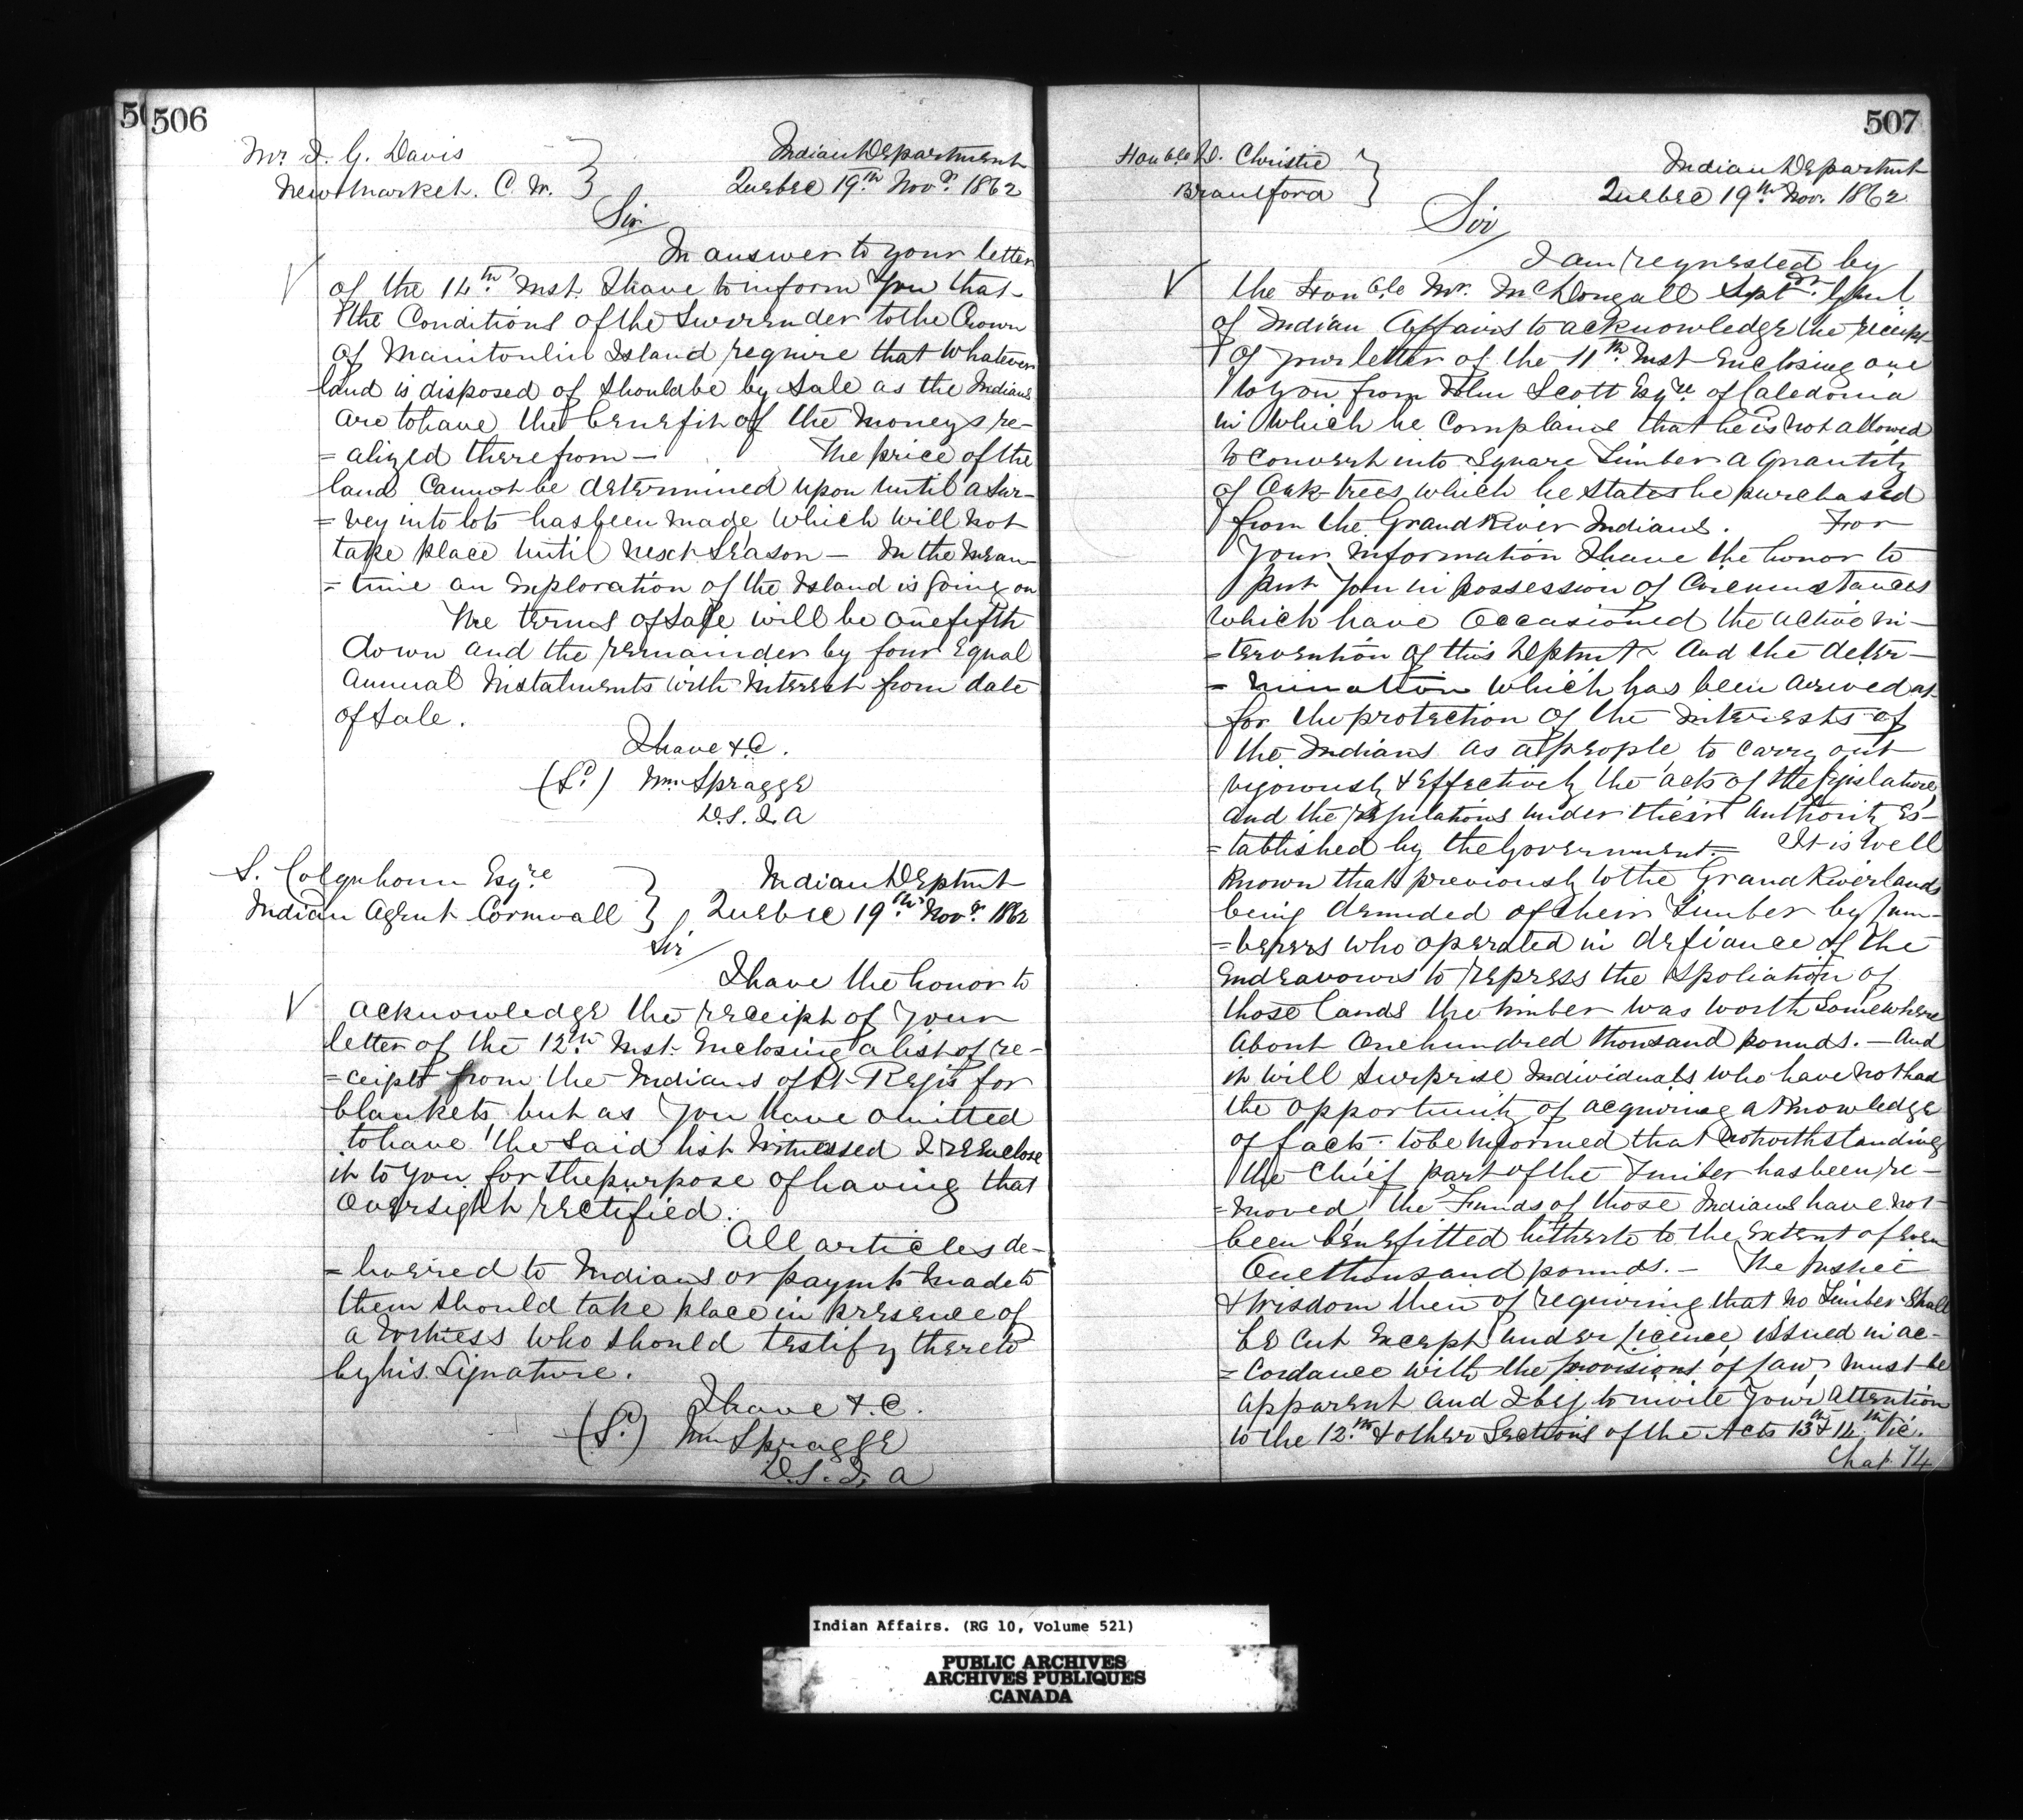 506
Mr. I. G. Davis
Newmarket. C. W.
Indian Department
Quebec 19th Novr. 1862
Sir
In answer to your letter
of the 14th Inst. I have to inform you that
the Conditions of the Surrender to the Crown
of Manitoulin Island require that whatever
land is disposed of should be by Sale as the Indians
are to have the benefit of the moneys re-
=alized therefrom — The price of the
land Cannot be determined upon until a Sur-
=vey into lots has been made, which will not
take place until next Season — In the mean-
=time an Exploration of the Island is going on
The terms of Sale will be one fifth
down and the remainder by four Equal
annual Instalments with Interest from date
of Sale.
I have &c.
(Sd.) Wm Spragge
D.S.I.A
S. Colquhoun Esqre
Indian Agent Cornwall
Indian Deptmt
Quebec 19th Novr. 1862
Sir
I have the honor to
acknowledge the receipt of your
letter of the 12th Inst. Enclosing a list of re-
=ceipts from the Indians of St. Regis for
blankets but as you have omitted
to have the said list Witnessed I reenclose
it to you for the purpose of having that
oversight rectified.
All articles de-
=livered to Indians or paymts made to
them should take place in presence of
a Witness who should testify thereto
by his Signature.
I have &.c.
(Sd.) Wm Spragge
D.S.I.A
507
Honble D. Christie
Brantford
Indian Departmt
Quebec 19th Nov. 1862
Sir
I am requested by
the Honble Mr. McDougall Suptdt. Genl
of Indian Affairs to acknowledge the receipt
of your letter of the 11th Inst Enclosing one
to you from John Scott Esqre. of Caledonia
in which he Complains that he is not allowed
to convert into Square Timber a quantity
of Oak trees which he states he purchased
from the Grand River Indians. For
your information I have the honor to
put you in possession of Circumstances
which have Occasioned the active in-
=tervention of this Deptmt and the deter-
=mination which has been arrived at
for the protection of the Interests of
the Indians as a people, to carry out
vigorously & Effectively the acts of the legislature,
and the regulations under their Authority Es-
=tablished by the Government= It is well
known that previously to the Grand River lands
being denuded of their Timber by lum-
=berers who operated in defiance of the
Endeavours to repress the Spoliation of
those lands the timber was worth Somewhere
about One hundred thousand pounds. — And
it will surprise Individuals who have not had
the opportunity of acquiring a Knowledge
of facts. to be Informed that notwithstanding
the Chief part of the Timber has been re-
=moved, the Funds of those Indians have not
been benefitted hitherto to the Extent of Even
One thousand pounds. — The Justice
& Wisdom then of requiring that no Timber Shall
be Cut Except under licence, issued in ac-
=cordance with the provisions of law, must be
apparent and I beg to invite your attention
to the 12th & other Sections of the Acts 13th & 14th Vic.
Chap 74
Indian Affairs. (RG 10, Volume 521)
PUBLIC ARCHIVES
ARCHIVES PUBLIQUES
CANADA